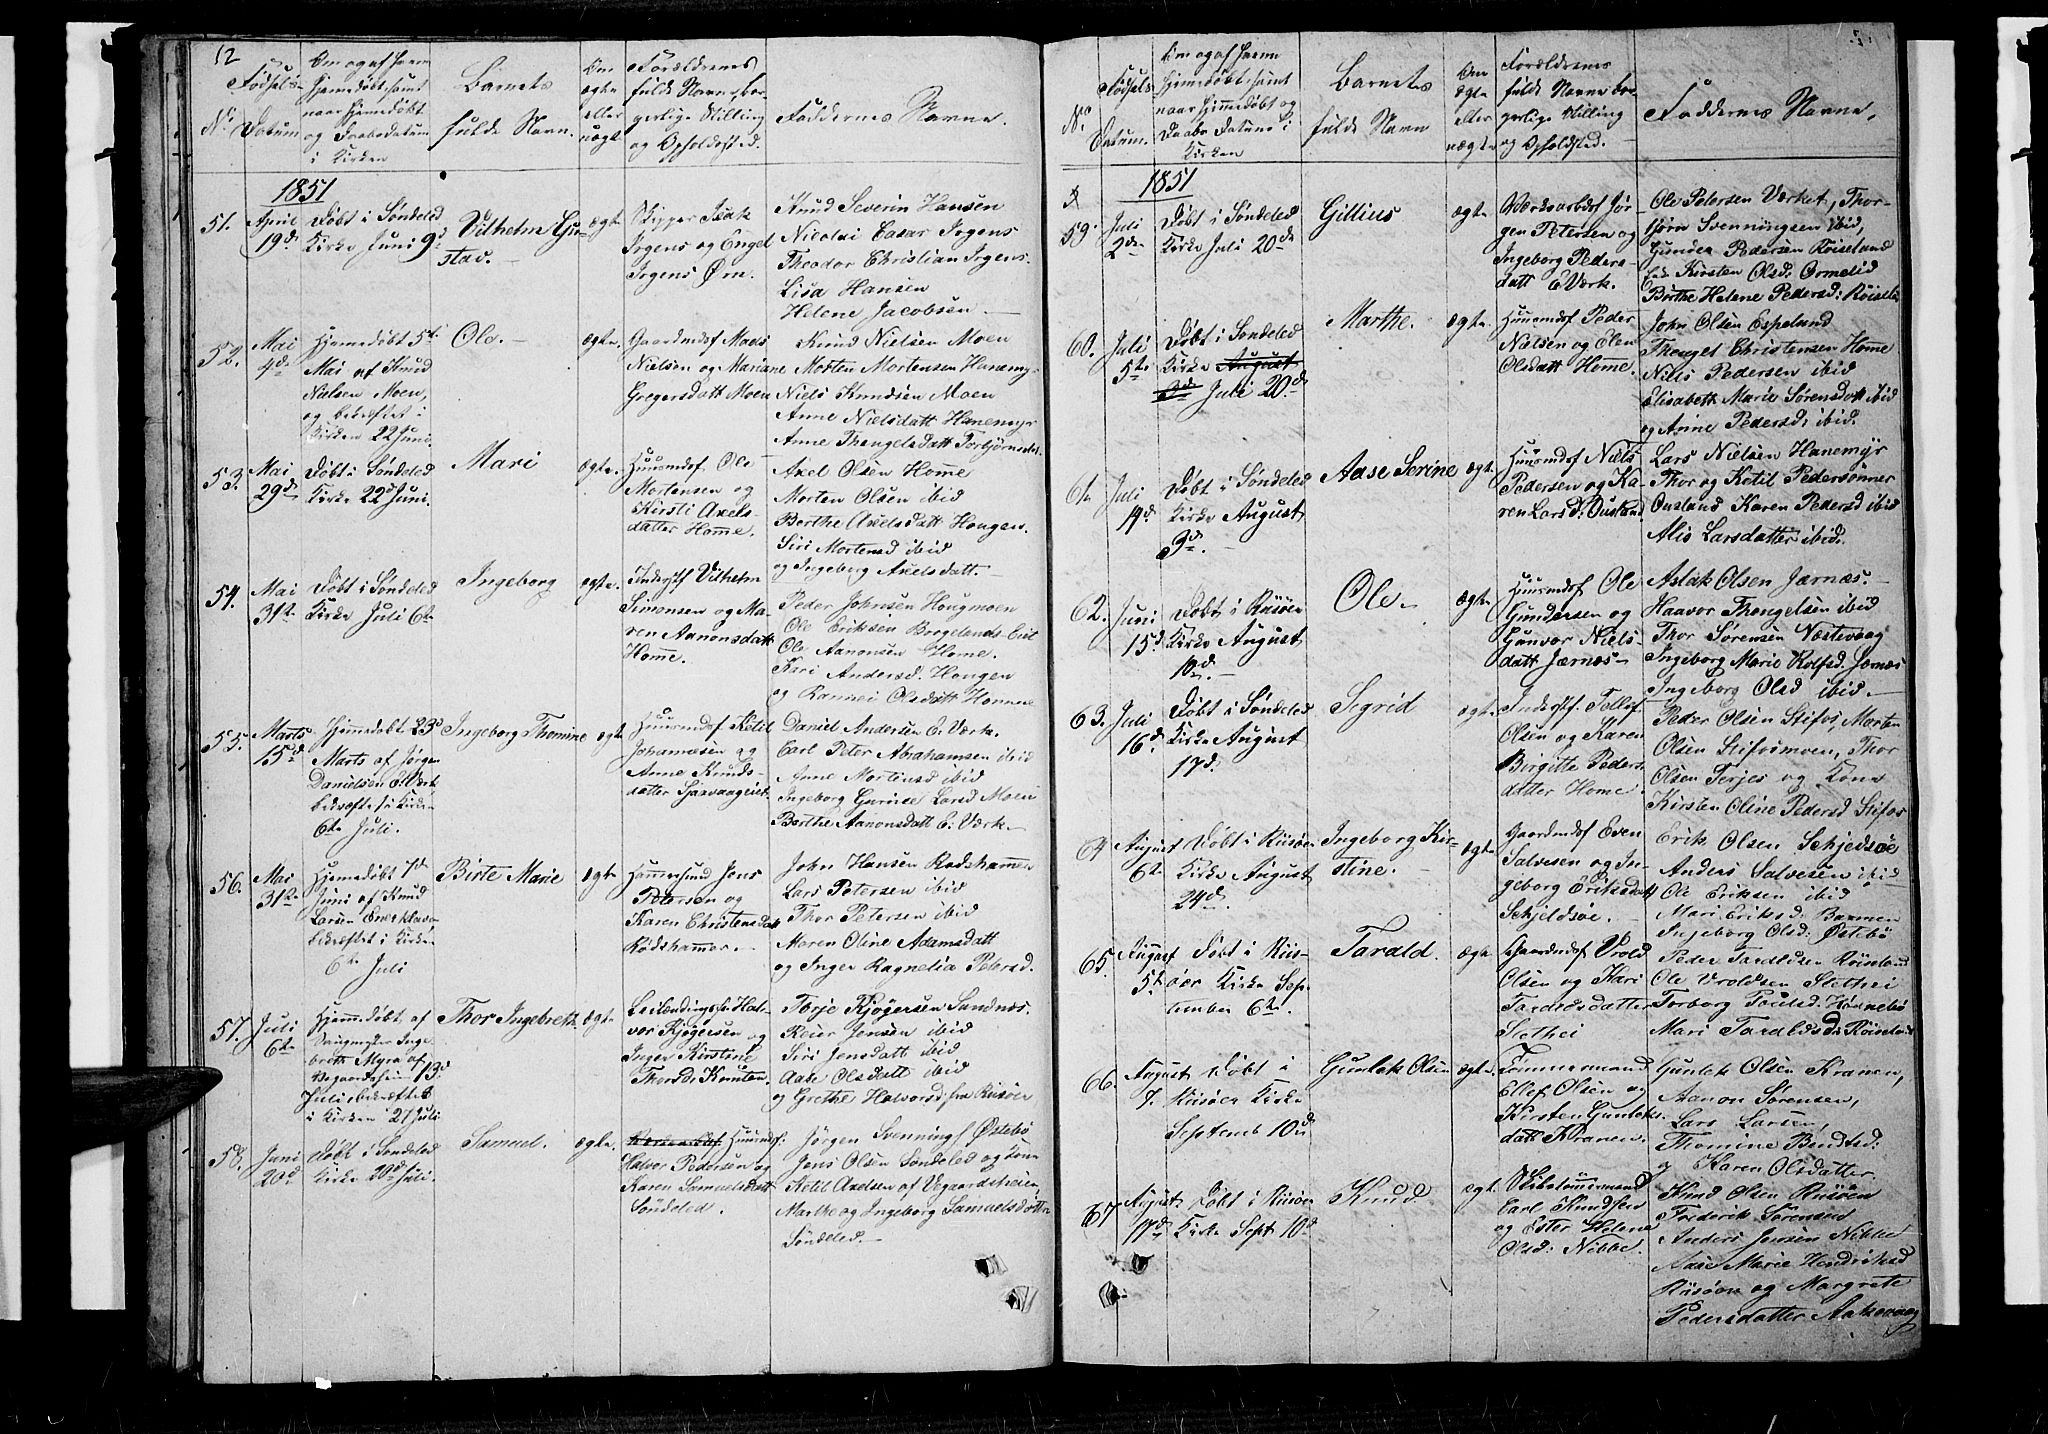 12
No.
Fødsels-
Datum
Om og af hvem
hjemmedøbt, samt
naar hjemmedøbt
og Daabsdatum
i Kirken
Barnets
fulde Navn.
Om
ægte
eller
uægte
Forældrenes
fulde Navne, bor-
gerlige Stilling
og Opholdssted.
Faddernes Navne.
1851
51.
April
19d
Døbt i Søndeled
Kirke Juni 9d
Vilhelm Gu-
stav.
ægte
Skipper Isak
Irgens og Engel
Irgens Örn.
Knud Severin Hansen
Nicolai Casar Irgens
Theodor Christian Irgens.
Lisa Hansen
Helene Jacobsen.
52.
Mai
4de
Hjemmedøbt 5te
Mai af Knud
Nielsen Moen,
og bekræftet i
Kirken 22 Juni.
Ole.
ægte.
Gaardmdsf Mads
Nielsen og Mariane
Gregersdatt Moen
Knud Nielsen Moen
Morten Mortensen Hanemyr
Niels Knudsen Moen
Anne Nielsdatt Hanemyr
Anne Thengelsdatt Torbjørnsdal.
53.
Mai
29d
Døbt i Søndeled
Kirke 22d Juni.
Mari
ægte.
Huusmdsf Ole
Mortensen og
Kirsti Axels-
datter Homme.
Axel Olsen Homme
Morten Olsen ibid
Berthe Axelsdatt Hougen.
Siri Mortensd ibid
og Ingeborg Axelsdatt.
54.
Mai
31te
Døbt i Søndeled
Kirke Juli 6te
Ingeborg
ægte.
Inderstf Vilhelm
Simonsen og Ma-
ren Aanonsdatt
Homme.
Peder Johnsen Hougmoen
Ole Eriksen Bregelands Eiet
Ole Aanonsen Homme.
Kari Andersd. Hougen
og Rannei Olsdatt Homme
55.
Marts
15d
Hjemmedøbt 23d
Marts af Jørgen
Danielsen E. Værk
bekræftet i Kirken
6te Juli.
Ingeborg Thomine
ægte
Huusmdsf Ketil
Johannesen og
Anne Knuds-
datter
Daniel Andersen E. Værk.
Carl Peter Abrahamsen ibid
Anne Mortensd ibid
Ingeborg Gurine Larsd Moen
Berthe Aanonsdatt E. Værk
56.
Mai
31te
Hjemmedøbt 1d
Juni af Knud
Larsen
bekræftet i Kirken
6te Juli
Birte Marie
ægte
Jens
Petersen og
Karen Christensdatt
Rødshammer.
John Hansen Rødshammer
Lars Petersen ibid
Thor Petersen ibid
Maren Oline Adamsdatt
og Inger Ragnelia Petersd.
57.
Juli
6te
Hjemmedøbt af
Sangmester Inge-
brett Myra af
Vegaardsheien 13d
Juli bekræftet
i Kirken 27 Juli
Thor Ingebrett
ægte.
Leilændingsf. Hal-
vor Kjøgersen og
Inger Kirstine
Thorsd: Knuten.
Terje Kjøgersen Sandnæs.
Reier Jensen ibid
Siri Jensdatt ibid
Aase Olsdatt ibid
og Grethe Halvorsd: fra Riisøen
58.
Juni
20d
Døbt i Søndeled
Kirke 20d Juli.
Samuel.
ægte.
Huusmdsf.
Halvor Pedersen og
Karen Samuelsdatt
Søndeled.
Jørgen Svenningsf Østebö
Jens Olsen Søndeled og Sønn
Ketil Axelsen af Vegaardsheien,
Marthe og Ingeborg Samuelsdøttre
Søndeled.
No.
Fødsels-
Datum.
Om og af hvem
hjemmedøbt, samt
naar hjemmedøbt og
Daabs Datums i
Kirken
Barnets
fulde Navn
Om
ægte
eller
uægte
Forældrenes
fulde Navne bor-
gerlige Stilling
og Opholdssted.
Faddernes Navne.
1851
59.
Juli
2de
Døbt i Søndeled
Kirke Juli 20de
Gillius
ægte.
Værksarbdsf Jør-
gen Petersen og
Ingeborg Peders-
datt E Værk.
Ole Petersen Værket, Thor-
bjørn Svenningsen ibid,
Gunder Pedersen Röiseland
Kirsten Olsd: Ormelid
Berthe Helene Pedersd: Röisel.
60.
Juli
5te
Døbt i Søndeled
Kirke August
3d Juli 20d.
Marthe.
ægte.
Huusmdsf Peder
Nielsen og Elen
Olsdatt Homme.
John Olsen Espeland
Thenget Christensen Homme
Nils Pedersen ibid
Elisabeth Marie Sørensdatt ibid
og Anne Pedersd: ibid.
61.
Juli
19d.
Døbt i Søndeled
Kirke August
3d.
Aase Serine
ægte.
Huusmdsf Niels
Pedersen og Ka-
ren Larsd: Ousland.
Lars Nielsen Hanemyr
Thor og Ketil Pedersønner
Ousland Karen Pedersd ibid
Alis Larsdatter ibid.
62.
Juni
15d
Døbt i Riisöer
Kirke August
10d.
Ole.
ægte.
Huusmdsf Ole
Gundersen og
Gunvor Niels-
datt Jærnæs
Aslak Olsen Jærnæs.
Haavor Thengelsen ibid
Thor Sørensen Næstevaag
Ingeborg Marie Rolfsd. Jernæs
Ingeborg Olsd ibid.
63.
Juli
16d.
Døbt i Søndeled
Kirke August
17d.
Segrid
ægte.
Inderstf. Tellef
Olsen og Karen
Birgitte Peders-
datter Homme.
Peder Olsen Stifos, Morten
Olsen Stifosmoen, Thor
Olsen Terjes og Kone
Kirsten Oline Pedersd Stifos
64
August
6te
Døbt i Riisøer
Kirke August
24d.
Ingeborg Kir-
stine.
ægte.
Gaardmdsf Even
Salvesen og In-
geborg Eriksdatt
Schjeldsöe.
Erik Olsen Schjedsöe
Anders Salvesen ibid
Ole Eriksen ibid
Mari Eriksd: Barmen
Ingeborg Olsd: Østebö
65.
August
5te
Døbt i Riis-
öer Kirke Sep-
tember 6te.
Tarald.
ægte
Gaardmdsf Vrold
Olsen og Kari
Taraldsdatter
Slethei
Peder Taraldsen Röiseland
Ole Vroldsen Slethei
Torborg Poulsd: Hønnebö
Mari Taraldsd: Röiseland
66.
August
7.
Døbt i
Riisøer Kirke
Septemb 10de
Gunlek Olsen
ægte.
Tømmermand
Ellef Olsen og
Kirsten Gunleks-
datt Kranen.
Gunlek Olsen Kranen,
Aanon Sørensen,
Lars Larsen,
Thomine Bendtsd:
og Karen Olsdatter
67
August
17de
Døbt i Riisøer
Kirke Sept 10d
Knud
ægte.
Skibstømmermand
Carl Knudsen
og Ester Helene
Olsd: Nibbe.
Knud Olsen Riisøen
Frederik Sørensen
Anders Jensen Nibbe
Aase Marie Hendriksd
Riisøen og Margrete
Pedersdatter Aakvaag